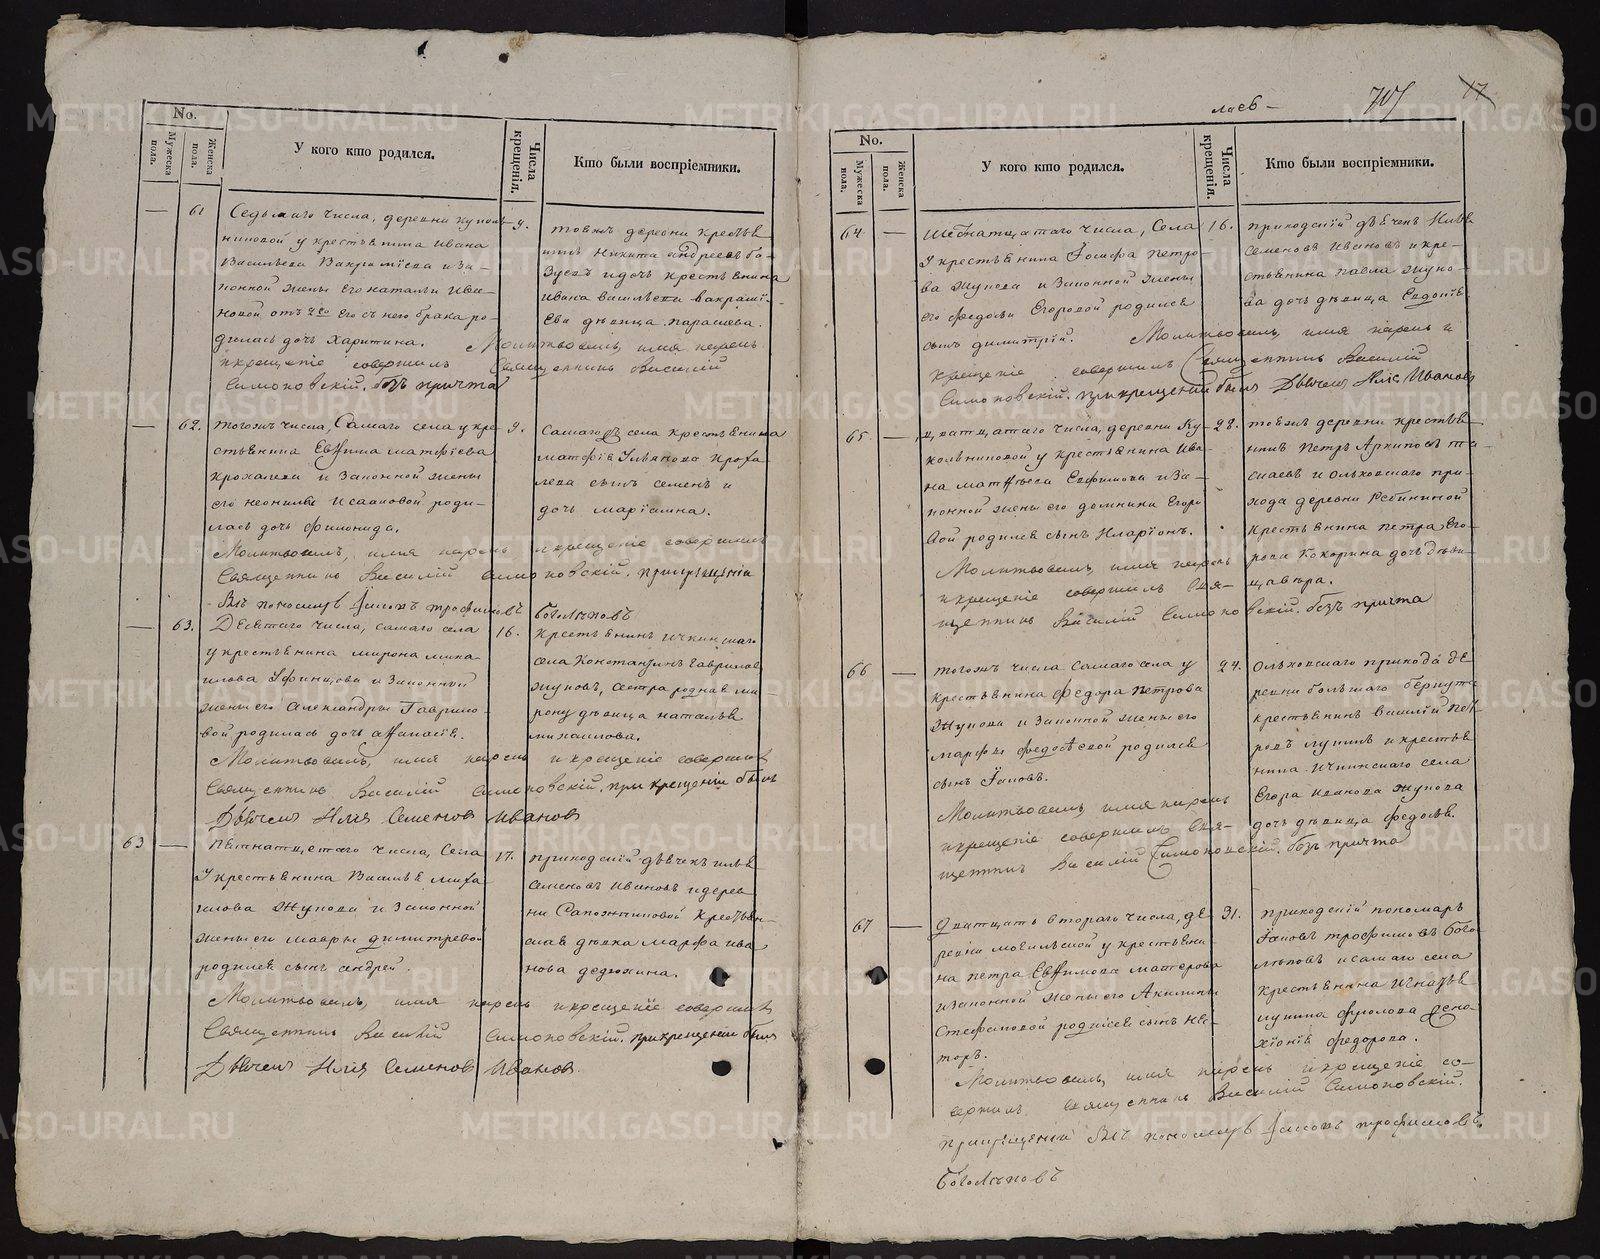 маѣ
17
No.
Мужеска пола.
Женска пола.
У кого кто родился.
Числа крещенія.
Кто были воспріемники.
61
Седьмаго числа, деревни
нниковой у крестьянина Ивана
Васильева и за-
конной жены его Натальи Ива-
новой отъ его съ нею брака ро-
дилась дочь Харитина. Молитвовалъ, имя нарекъ
и крещеніе совершилъ Священникъ Василій
Симоновскій. безъ причта
9.
тояжъ деревни кресть
янинъ Никита Андреевъ
и дочь крестьянина
Ивана Васильева
ева дѣвица
62.
тогожъ числа, Самаго села у кре-
стьянина Евфима Матфіева
и Законной жены
его Неонилы Исааковой роди-
лась дочь Филонида.
Молитвовалъ, имя нарекъ и крещеніе совершилъ
Священникъ Василій Симоновскій. при крещеніи
былъ пономарь Іаковъ Трофимовъ Боголѣповъ
9.
Самагожъ села крестьянина
Матфія
лева сынъ Семенъ и
дочь Маріамна.
63.
Девятаго числа, самаго села
у крестьянина Мирона Миха-
илова и Законной
жены его Александры Гаврило-
вой родилась дочь Афанасія.
Молитвовалъ, имя нарекъ и крещеніе совершилъ
Священникъ Василій Симоновскій. при крещеніи былъ
Дьячекъ Илія Семеновъ Ивановъ
16.
крестьянинъ Ичкинскаго
села Константинъ Гавриловъ
Жуковъ, сестра родная Ми-
рону дѣвица Наталья
Михайлова.
63
Пятнатцатаго числа, Села
У крестьянина Василья Миха-
илова Жукова и Законной
жены его Мавры Димитревой
родился сынъ Андрей.
Молитвовалъ, имя нарекъ и крещеніе совершилъ
Священникъ Василій Симоновскій. при крещеніи былъ
Дьячекъ Илія Семеновъ Ивановъ.
17.
приходскій дьячекъ Илья
Семеновъ Ивановъ и дерев
ни Сапожниковой крестьян-
ская дѣвка Марфа Ива
нова Дедюхина.
No.
Мужеска пола.
Женска пола.
У кого кто родился.
Числа крещенія.
Кто были воспріемники.
64.
Шестнатцатаго числа, Села
У крестьянина Іосифа Петро-
ва Жукова и Законной жены
его Федосьи Егоровой родился
сынъ Димитрій. Молитвовалъ, имя нарекъ и
крещеніе совершилъ Священникъ Василій
Симоновскій. при крещеніи былъ Дьячекъ Илія Ивановъ
16.
приходскій дьячекъ Илья
Семеновъ Ивановъ и кре-
стьянина Павла Жуко-
ва дочь дѣвица Евдокія
65.
цватцатаго числа, деревни Ку-
кольниковой у крестьянина Ива-
на Матвѣева Евфимова и За-
конной жены его Домники Егоро
вой родился сынъ Иларіонъ.
Молитвовалъ, имя нарекъ
и крещеніе совершилъ Свя-
щенникъ Василій Симоновскій. безъ причта
28.
тояжъ деревни крестья
нинъ Петръ Архиповъ
и Ольховскаго при-
хода деревни
крестьянина Петра Его-
рова Кокорина дочь дѣви-
ца
66
тогожъ числа Самаго села у
крестьянина Федора Петрова
Жукова и Законной жены его
Марфы Федосѣевой родился
сынъ Іаковъ.
Молитвовалъ, имя нарекъ
и крещеніе совершилъ Свя-
щенникъ Василій Симоновскій. безъ причта
24.
Ольховскаго прихода де
ревни большаго
крестьянинъ Василій Пет
ровъ и крестья
нина Ичкинскаго села
Егора Иванова Жукова
дочь дѣвица Федосья.
67
Дватцать втораго числа, де
ревни у крестьяни-
на Петра Евфимова
и Законной жены его Акилины
Стефановой родился сынъ Не-
сторъ.
Молитвовалъ, имя нарекъ и крещеніе со-
вершилъ Священникъ Василій Симоновскій.
при крещеніи былъ пономарь Іаковъ Трофимовъ
Боголѣповъ
31.
Приходскій пономарь
Іаковъ Трофимовъ Бого-
лѣповъ и самаго села
крестьянина Игнатья
Фролова
Федорова.
METRIKI.GASO-URAL.RU